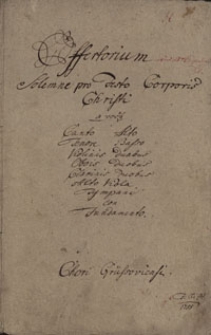 Offertorium
Solemne pro Festo Corporis
Christi
a voci
Canto Alto
Tenore Basso
Violinis Duobus
Obois Duobus
Clarinis Duobus
Alto Viola
Tympani
con
Fundamento.
Chori